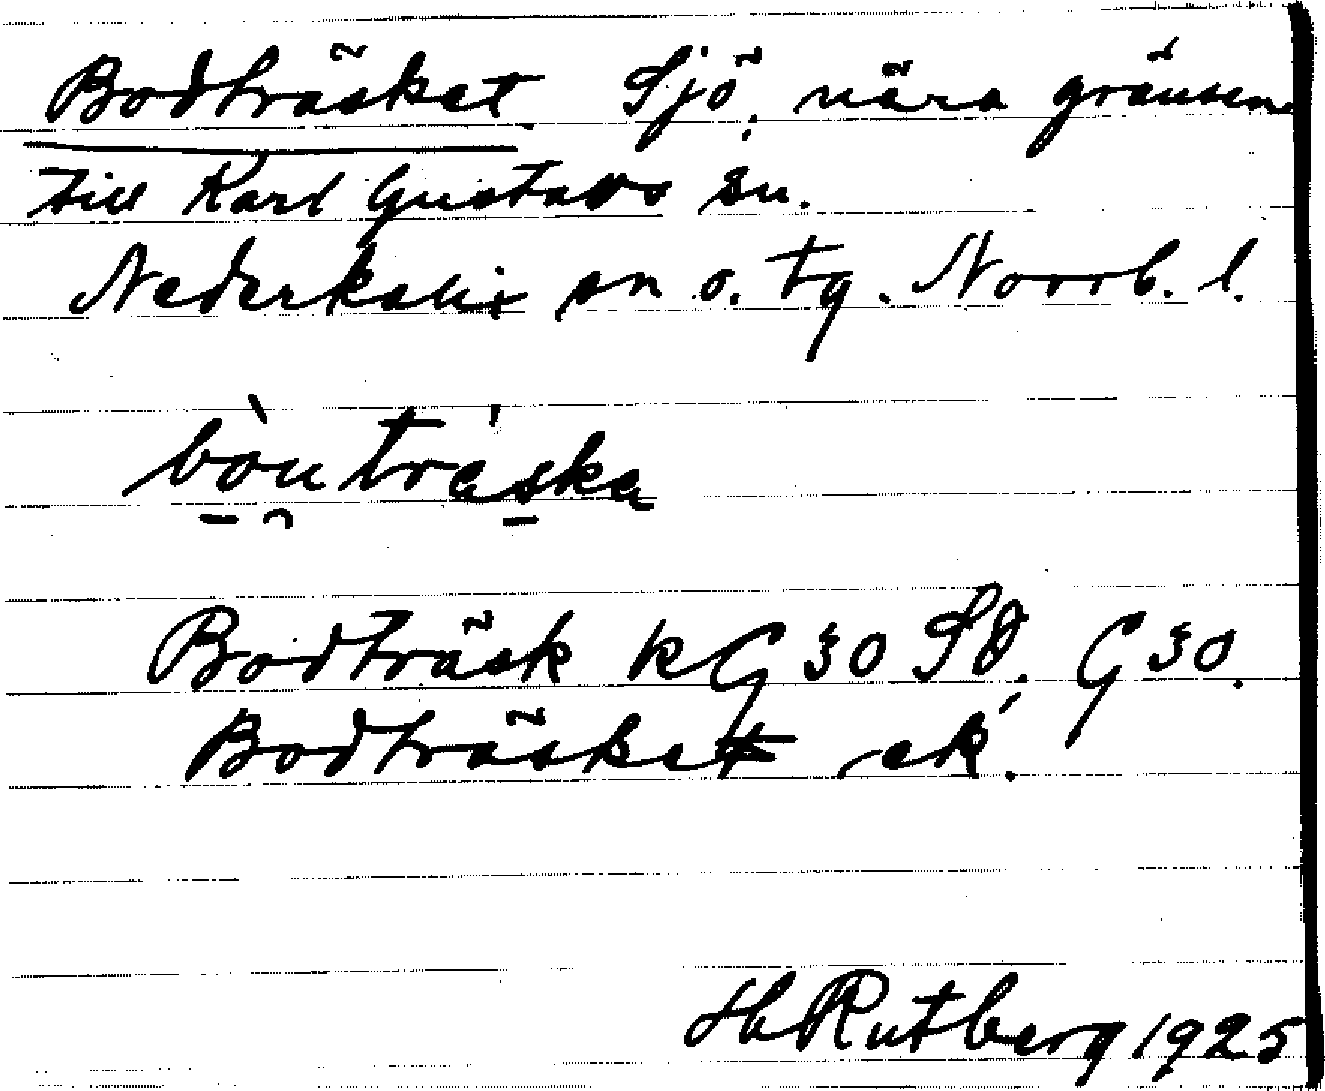 Bodträsket. Sjö, nära gränsen
till Karl Gustavs sn.
Nederkalix sn o. tg. Norrb. l.
Bodträsk KG 30 SO. G 30.
Bodträsket ek.
Hb Rutberg 1925